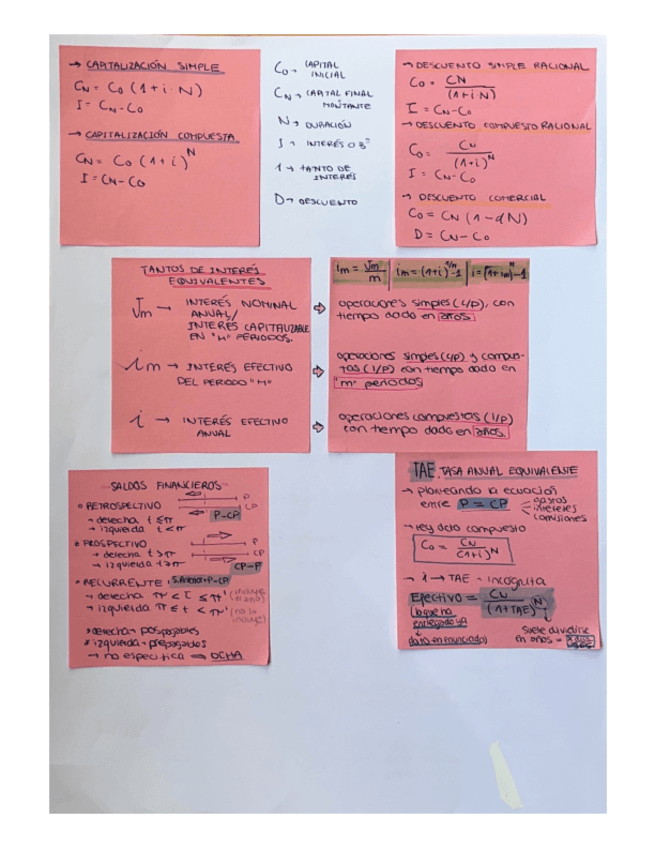 → CAPITALIZACIÓN SIMPLE
CN = Co (1+i·N)
I = CN-Co
→ CAPITALIZACIÓN COMPUESTA
CN = Co (1+i)^N
I = CN-Co
Co → CAPITAL
INICIAL
CN → CAPITAL FINAL
MONTANTE
N → DURACIÓN
I → INTERÉS O B=
1 → TANTO DE
INTERÉS
D → DESCUENTO
→ DESCUENTO SIMPLE RACIONAL
Co = CN / (1+i·N)
I = CN-Co
→ DESCUENTO COMPUESTO RACIONAL
Co = CN / (1+i)^N
I = CN-Co
→ DESCUENTO COMERCIAL
Co = CN (1-dN)
D = CN-Co
TANTOS DE INTERÉS
EQUIVALENTES
Jm → INTERÉS NOMINAL
ANUAL/
INTERÉS CAPITALIZABLE
EN "M" PERIODOS.
im → INTERÉS EFECTIVO
DEL PERIODO "M"
i → INTERÉS EFECTIVO
ANUAL
im = Jm / m | im = (1+i)^1/M -1 | i = (1+im)^M -1
operaciones simples (c/p), con
tiempo dado en años.
operaciones simples (c/p) y compues-
tas (l/p) con tiempo dado en
"m" periodos
operaciones compuestas (l/p)
con tiempo dado en años.
SALDOS FINANCIEROS
• RETROSPECTIVO
P
CP
→ derecha t ≤ π
→ izquierda t < π
P-CP
• PROSPECTIVO
P
CP
→ derecha t > π
→ izquierda t ≥ π
CP-P
• RECURRENTE: S.Anterior+P-CP
→ derecha π < t ≤ π' (incluye
→ izquierda π ≤ t < π' (no lo
incluye)
* derecha → pospagables
* izquierda → prepagables
→ no especifica ⇒ DCHA
TAE. TASA ANUAL EQUIVALENTE
→ planteando la ecuación
entre P = CP
gastos
intereses
comisiones
→ ley dcto compuesto
Co = CN / (1+i)^N
→ i → TAE → incógnita
Efectivo = CN / (1+TAE)^N
lo que ha
entregado ya
↓
dato en enunciado)
suele dividirse
en años =